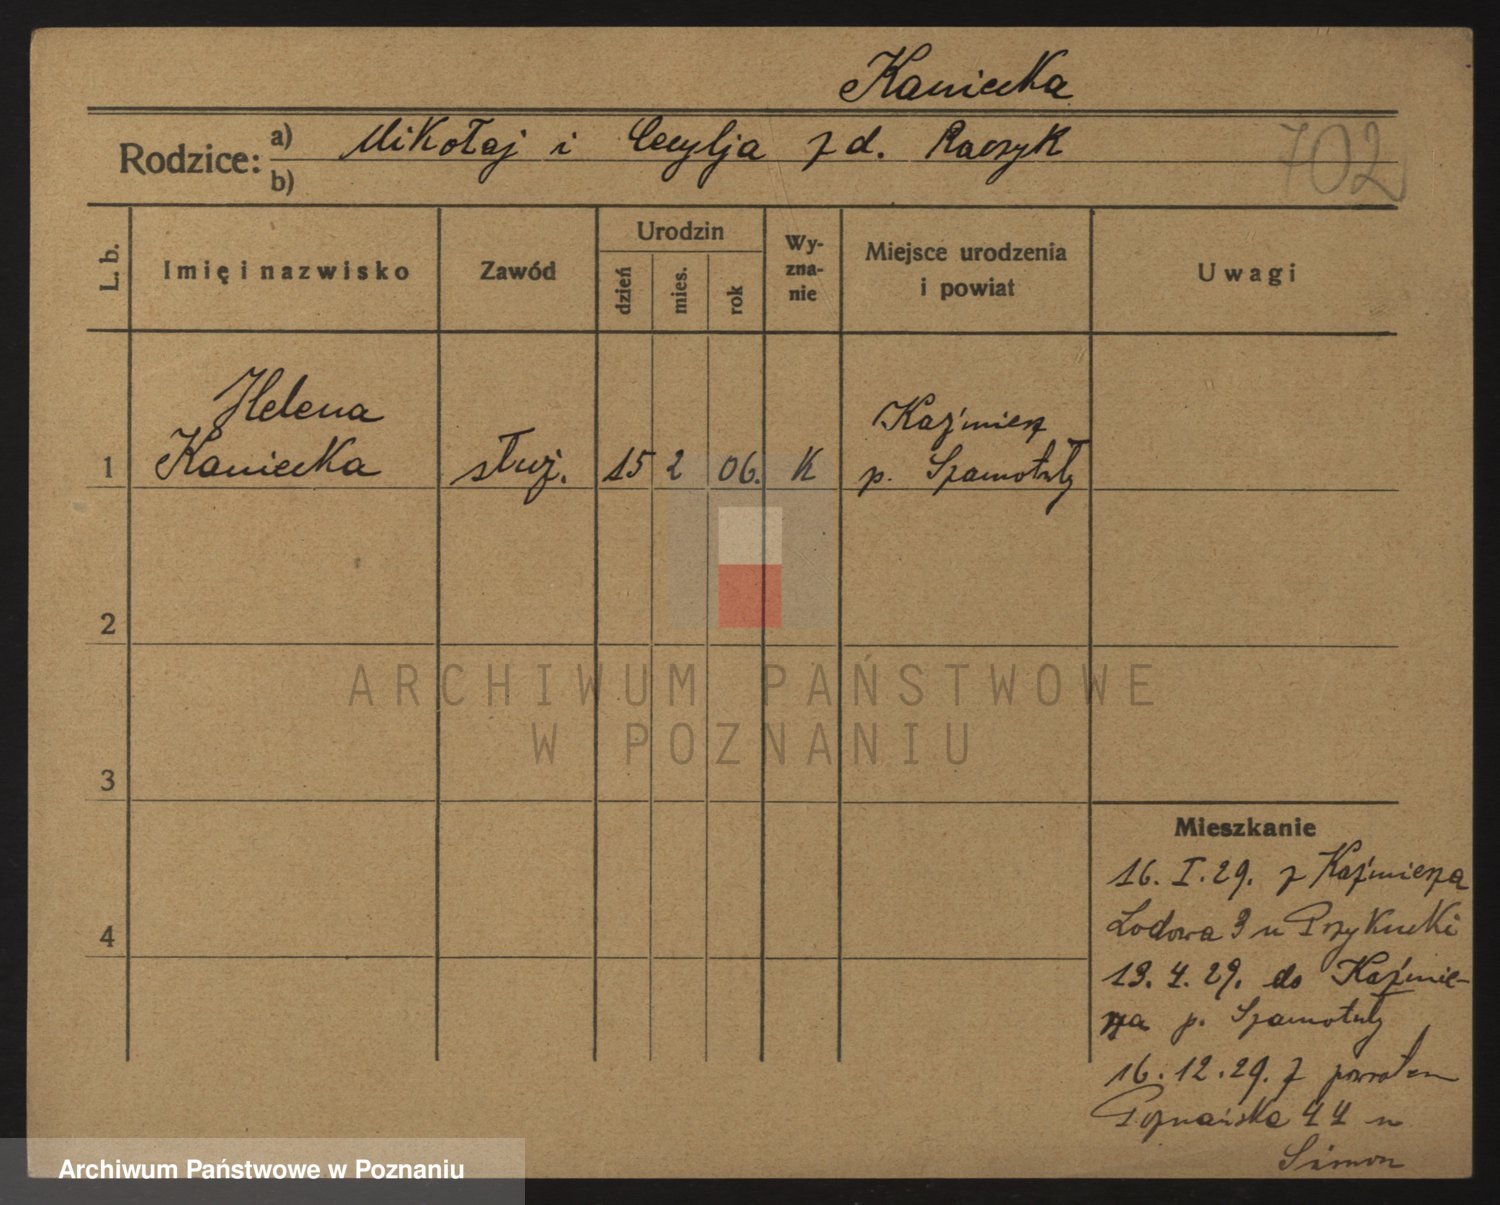 Kaniecka
Rodzice: a) Mikołaj i Cecylja z d. Raczyk
b)
702
L. b.
Imię i nazwisko
Zawód
Urodzin
dzień
mies.
rok
Wy-
zna-
nie
Miejsce urodzenia
i powiat
Uwagi
Helena
1 Kaniecka służ. 15 2 06. K
Kaźmierz
p. Szamotuły
2
3
4
Mieszkanie
16. I. 29. z Kaźmierza
Lodowa 3 u Przykucki
13. 4. 29. do Kaźmie-
rza p. Szamotuły
16. 12. 29. z powrotem
Poznańska 44 u
Simon
ARCHIWUM PAŃSTWOWE
W POZNANIU
Archiwum Państwowe w Poznaniu